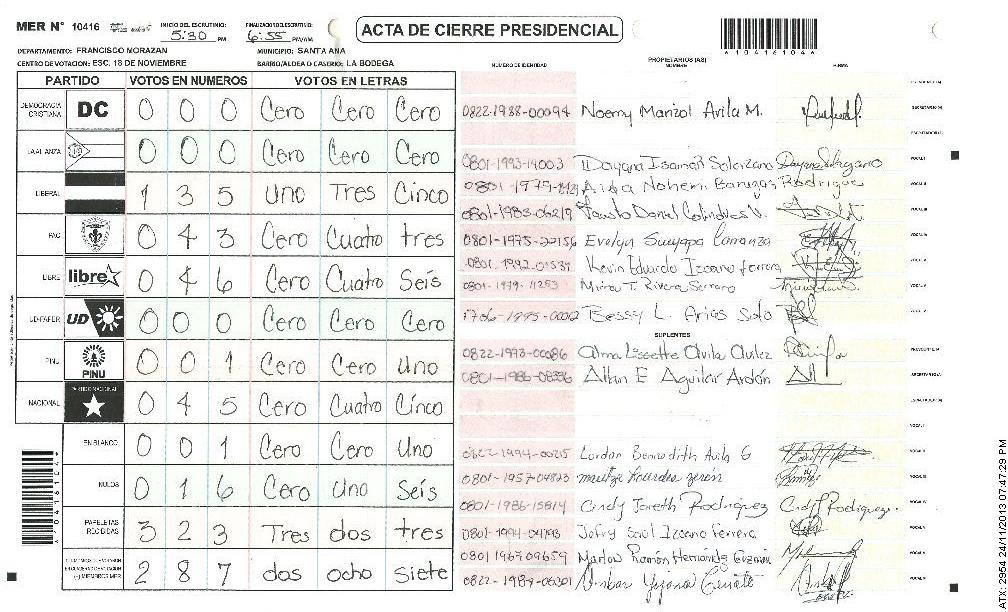 MER N° 10416 INICIO DEL ESCRUTINIO: 5:30 PM FINALIZACION DEL ESCRUTINIO: 6:55 PM/AM
ACTA DE CIERRE PRESIDENCIAL
DEPARTAMENTO: FRANCISCO MORAZAN MUNICIPIO: SANTA ANA
CENTRO DE VOTACION: ESC. 18 DE NOVIEMBRE BARRIO/ALDEA O CASERIO: LA BODEGA
PARTIDO VOTOS EN NUMEROS VOTOS EN LETRAS
DEMOCRACIA CRISTIANA DC 0 0 0 Cero Cero Cero
LA ALIANZA 0 0 0 Cero Cero Cero
LIBERAL 1 3 5 Uno Tres Cinco
PAC 0 4 3 Cero Cuatro tres
LIBRE libre 0 4 6 Cero Cuatro Seis
UD-FAPER UD 0 0 0 Cero Cero Cero
PINU PINU 0 0 1 Cero Cero Uno
NACIONAL PARTIDO NACIONAL 0 4 5 Cero Cuatro Cinco
EN BLANCO 0 0 1 Cero Cero Uno
NULOS 0 1 6 Cero Uno Seis
PAPELETAS RECIBIDAS 3 2 3 Tres dos tres
2 8 7 dos ocho siete
NUMERO DE IDENTIDAD PROPIETARIOS (AS) NOMBRE FIRMA
0822-1988-00094 Noemy Marizol Avila M.
0801-1993-14003 Dayana Isamar Solorzano
0801-1983-06219
0801-1975-22156 Evelyn Suyapa Carranza
Kevin Eduardo
Mirna T. Rivera Serrano
Bessy L. Arias Soto
SUPLENTES
0822-1973-00086 Alma Lissette Avila
0801-1986-08396 Allan E Aguilar Ardón
0822-1994-00215
0801-1957-04823
0801-1986-15814 Cindy Janeth Rodriguez
0801-1994-04793
0801 1967 09659 Marlon Ramón Hernández Guzmán
0822-1987-06301
*0416104*
ATX: 2954 24/11/2013 07:47:29 PM